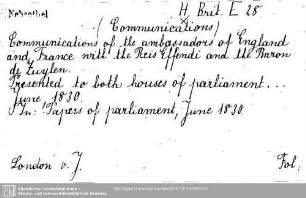 H. Brit. E 28
(Communications)
Communications of the ambassadors of England
and France with the Reis Effendi and the Baron
de Zuylen.
Presented to both houses of parliament...
June 1830.
In: Papers of parliament, June 1830.
London o. J. Fol.